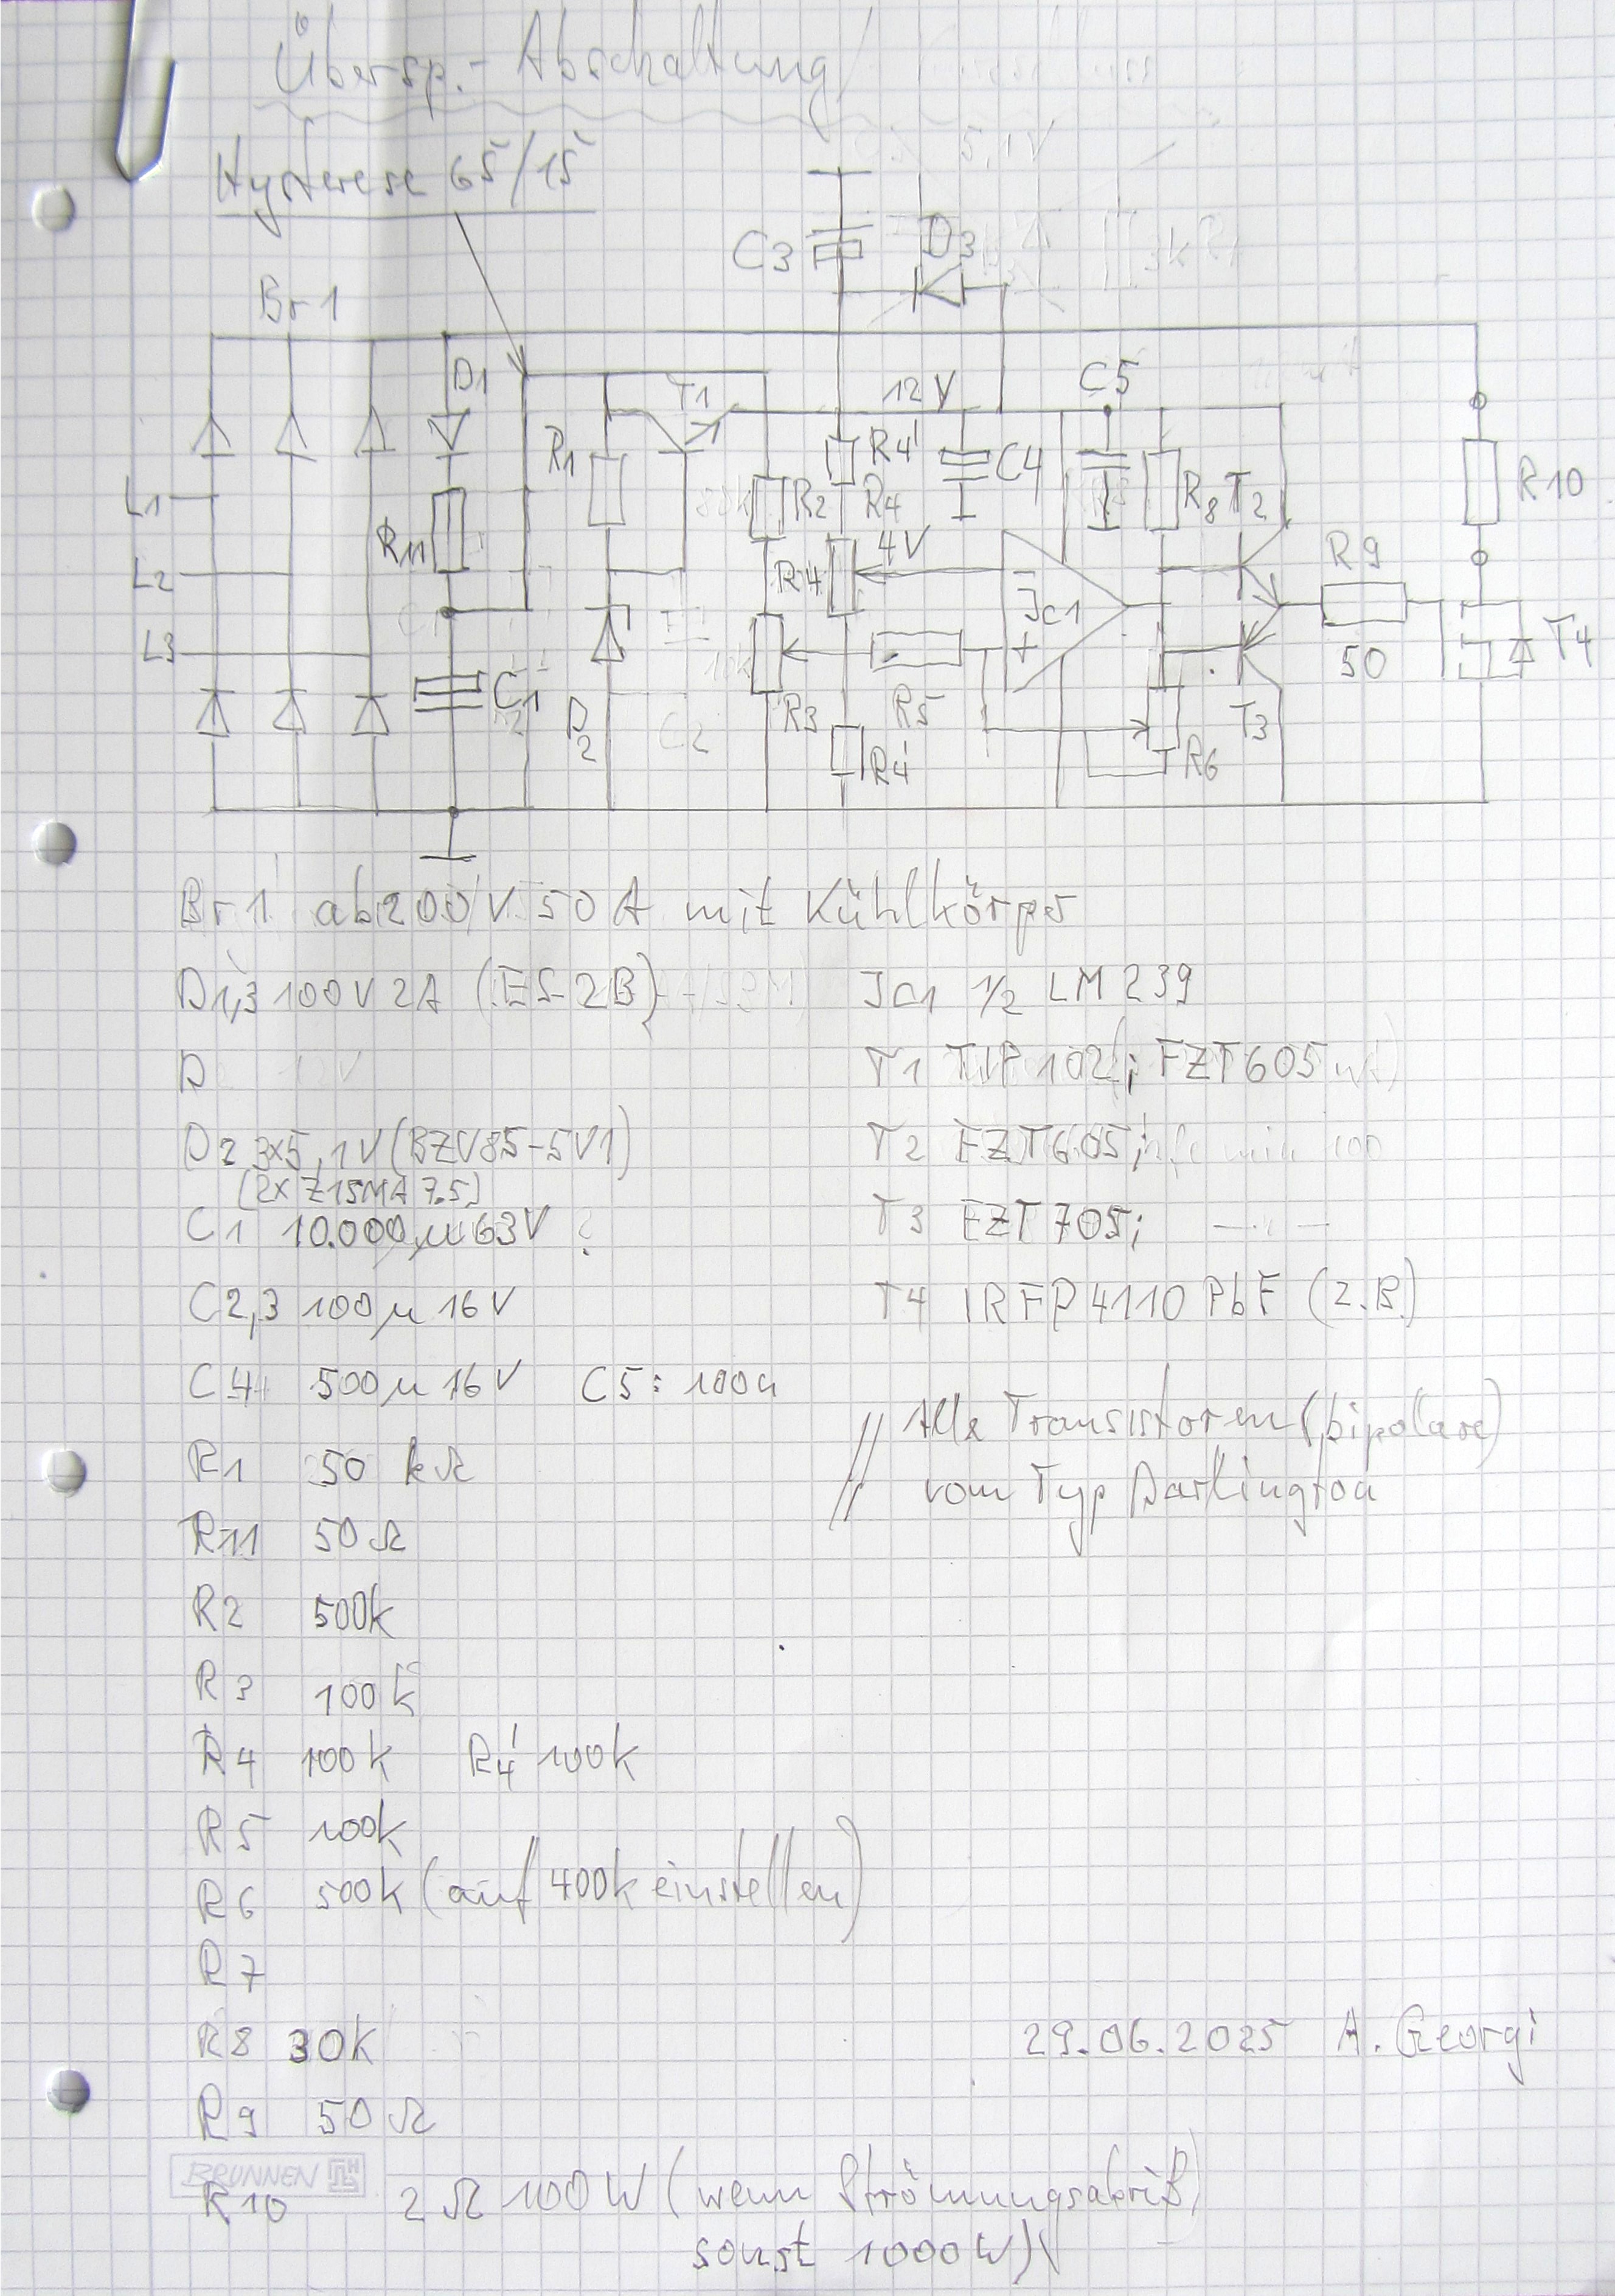 Übersp.-Abschaltung
5,1V
Hysterese 65/15
C3
D3
Br1
D1
T1
12V
C5
R1
R4'
C4
R2
R4
R8
T2
R10
L1
R11
4V
R9
L2
R4
Ic1
L3
50
T4
C1
D2
C2
R3
R5
T3
R4'
R6
Br1 ab 200V 50A mit Kühlkörper
D1,3 100V 2A (ES-2B)
Jc1 1/2 LM239
D 12V
T1 TIP 102; FZT605
D2 3x5,1V (BZV85-5V1)
(2x Z15MA 7.5)
T2 FZT605; hfe min 100
C1 10.000µ 63V ?
T3 FZT705; —"—
C2,3 100µ 16V
T4 IRFP4110PbF (z.B.)
C4 500µ 16V C5: 100n
// Alle Transistoren (bipolare)
vom Typ Darlington
R1 50 kΩ
R11 50Ω
R2 500k
R3 100k
R4 100k R4' 100k
R5 100k
R6 500k (auf 400k einstellen)
R7
R8 30k
29.06.2025 A. Georgi
R9 50Ω
BRUNNEN
R10 2Ω 100W (wenn Strömungsabriß,
sonst 1000W)